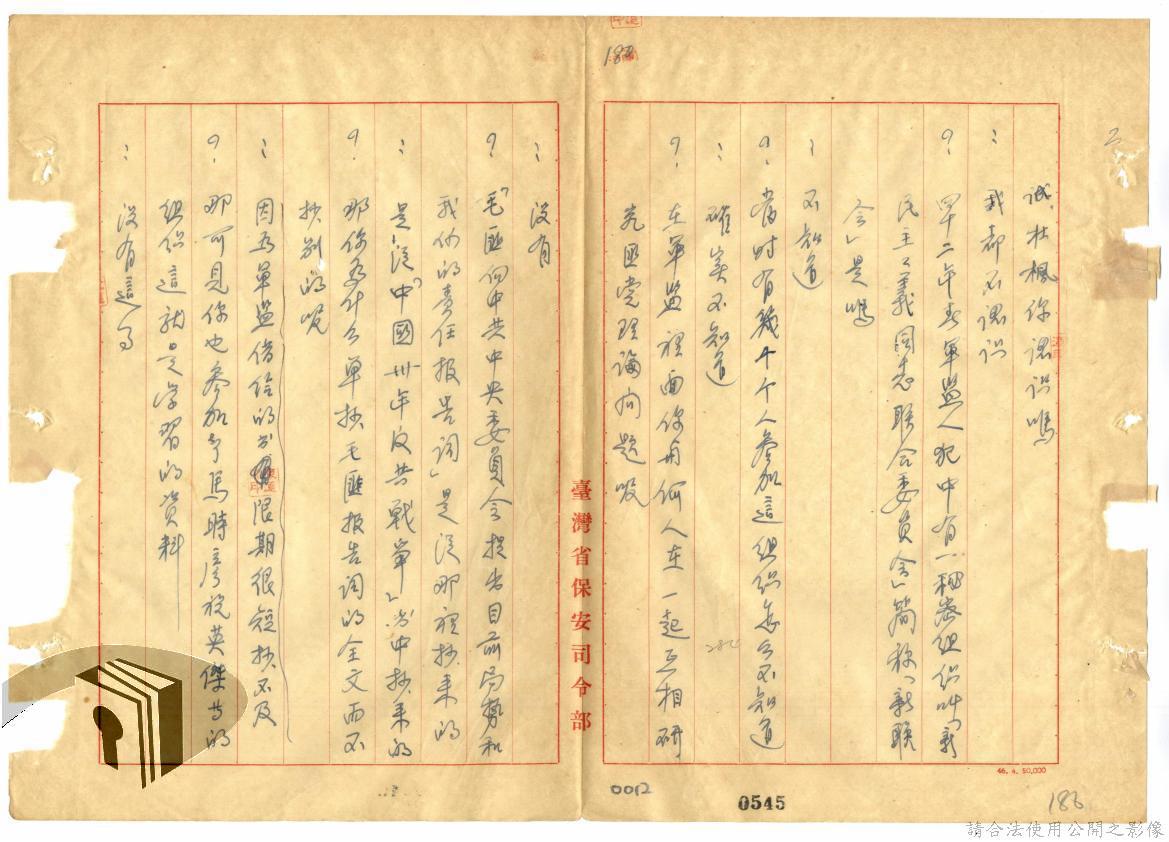 誠、杜楓你認識嗎
：我都不認識
？四十二年春軍監人犯中有一秘密組織叫「新
民主主義同志聯合委員會」簡稱「新聯
會」是嗎
：不知道
？當時有幾十个人參加這組織怎么不知道
：確實不知道
？在軍監裡面你與何人在一起互相研
究匪党理論問題呢
臺灣省保安司令部
：沒有
？「毛匪向中共中央委員会提出目前局勢和
我們的責任報告詞」是從那裡抄來的
：是從「中國卅年反共戰爭」当中抄來的
？那你為什么單抄毛匪報告詞的全文而不
抄別的呢
：因為軍監借給的書限期很短抄不及
？那可見你也參加了馬時彥祝英傑等的
組織這就是學習的資料
：沒有這事
46.4.50,000
0012
0545
188
請合法使用公開之影像